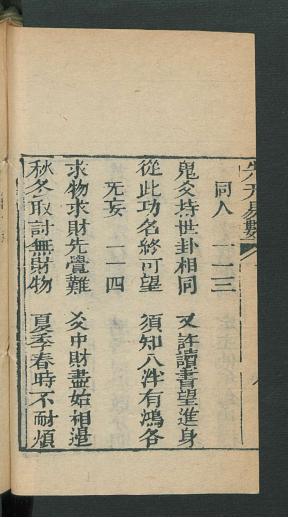 先天易數
同人 一一三
鬼爻持世卦相同 又許讀書望進身
從此功名終可望 須知八泮有鴻名
无妄 一一四
求物求財先覺難 爻中財盡始相違
秋冬取討無財物 夏季春時不耐煩